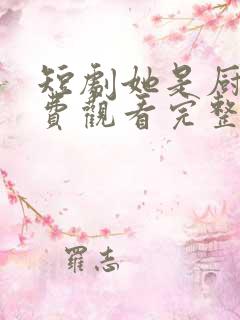 短劇她是廚
費觀看完整
羅志